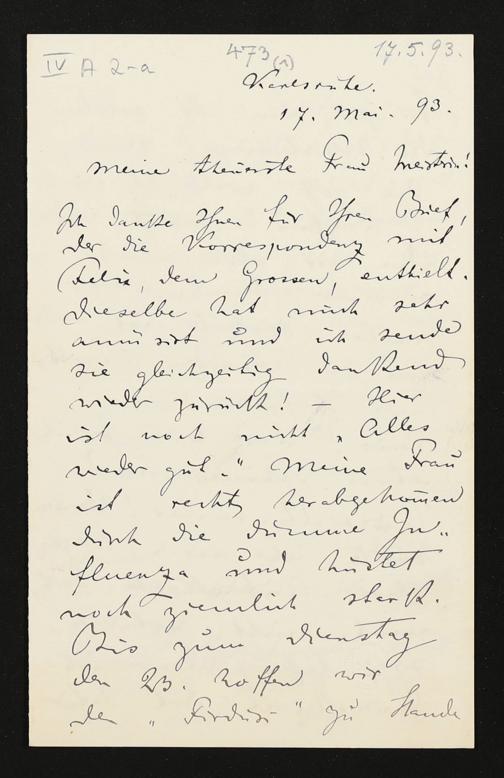 IV A 2-a
473 (1)
17.5.93.
Karlsruhe.
17. Mai. 93.
Meine theuerste Frau Meistrin!
Ich danke Ihnen für Ihren Brief,
der die Korrespondenz mit
Felix, dem Grossen, enthielt.
Dieselbe hat mich sehr
amüsirt und ich sende
sie gleichzeitig dankend
wieder zurück! – Hier
ist noch nicht „Alles
wieder gut." Meine Frau
ist recht herabgekom̄en
durch die dumme In„
fluenza und hustet
noch ziemlich stark.
Bis zum Dienstag
den 23. hoffen wir
den „Firdusi" zu Stande